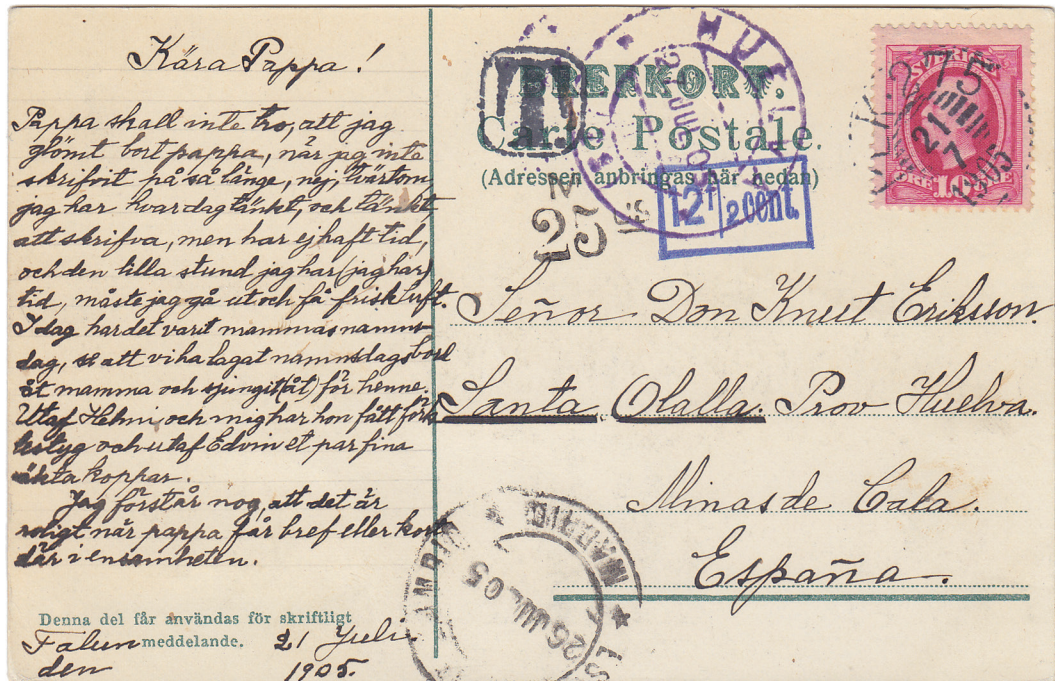 Kära Pappa!
Pappa skall inte tro, att jag
glömt bort pappa, när jag inte
skrifvit på så länge, nej, tvärtom
jag har hvar dag tänkt, och tänkt
att skrifva, men har ej haft tid,
och den lilla stund jag har (jag har)
tid, måste jag gå ut och få frisk luft.
I dag har det varit mammas namns-
dag, så att vi ha lagat namnsdagsbord
åt mamma och sjungit (åt) för henne.
Utaf Helmi och mig har hon fått
och utaf Edvin et par fina
äkta koppar.
Jag förstår nog, att det är
roligt när pappa får bref eller kort
där i ensamheten.
Denna del får användas för skriftligt
meddelande.
Falun 21 Yuli
den 1905.
BREFKORT.
Carte Postale.
(Adressen anbringas här nedan)
T
HUELVA
N
25
12 1/2 cent.
SVERIGE
10
ÖRE
PKXP 275
21
7
1905
Señor Don Knut Eriksson.
Santa Olalla. Prov Huelva.
Minas de Cala.
España.
MADRID
26 JUL 05